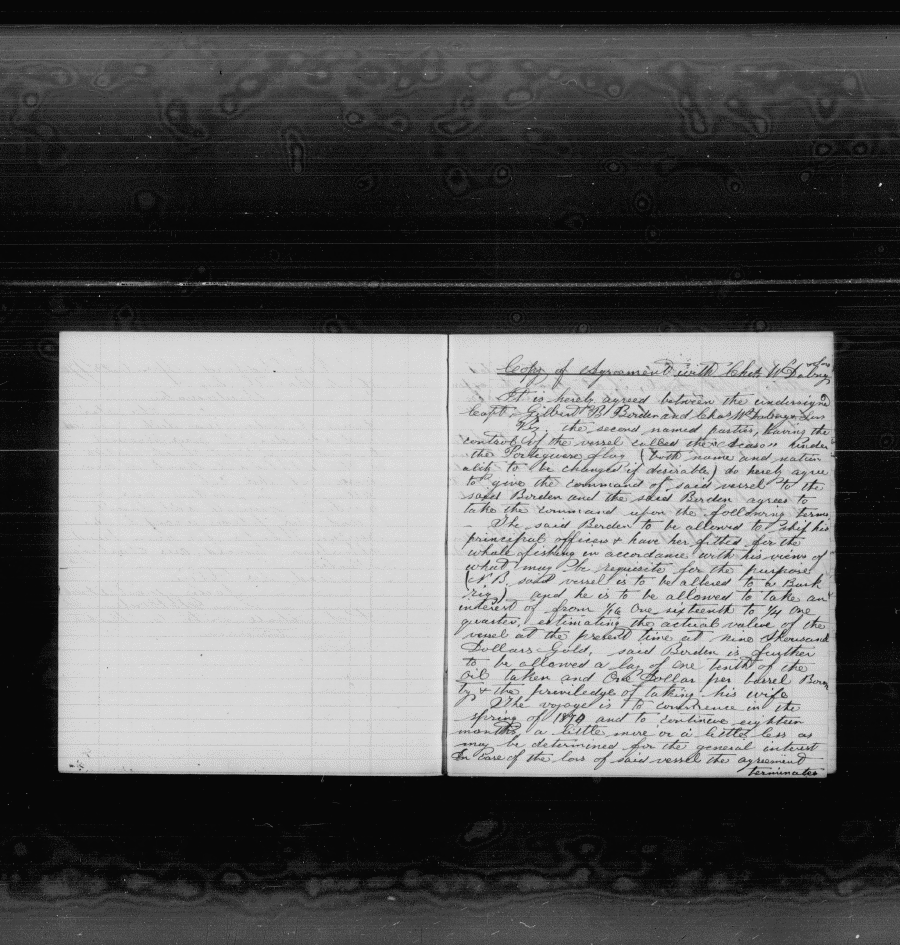 Copy of Agreement with Chas W Dabney &
It is hereby agreed between the undersigned
Capt. Gilbert B. Borden and Chas W Dabney & Sons
Viz, the second named parties, having the
control of the vessel called the Season under
the Porteguese flag (both name and nation
ality to be changed if desirable) do herely agree
to give the command of said vessel to the
said Borden and the said Borden agrees to
take the command upon the following terms
– The said Borden to be allowed to ship his
principal officers & have her fitted for the
whale fishing in accordance with his views of
what may be requisite for the purpose
(N.B. said vessel is to be altered to a Bark
rig) and he is to be allowed to take an
interest of from 1/16 One sixteenth to 1/4 One
quarter, estimating the actual value of the
vessel at the present time at nine thousand
Dollars Gold, said Borden is further
to be allowed a lay of one tenth of the
Oil taken and One Dollar per barrel
& the priviledge of taking his wife
The voyage is to commence in the
spring of 1870 and to contineve eighteen
months, a little more or a little less as
may be determined for the general interest
In Case of the loss of said vessel the agreement
terminates